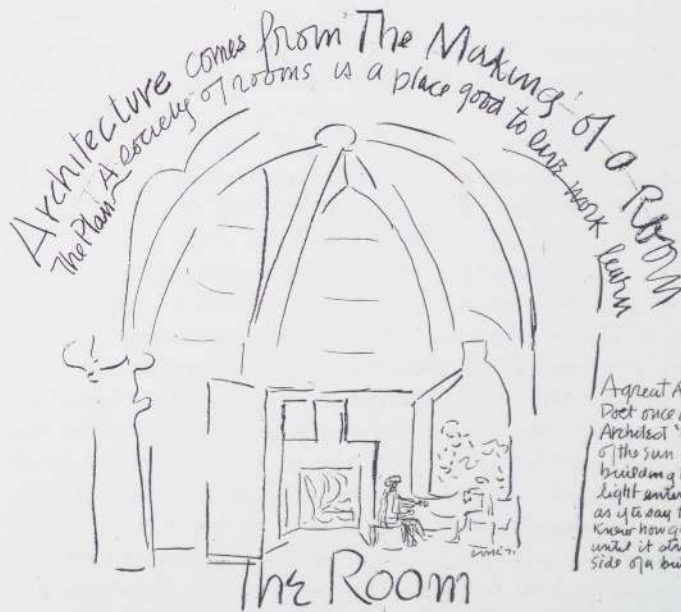 Architecture comes from The Making of a Room
The Plan A society of rooms is a place good to live work learn
A great A
Poet once
Architect
of the sun
building
light enter
as if to say
Knew how g
until it str
side of a bui
The Room